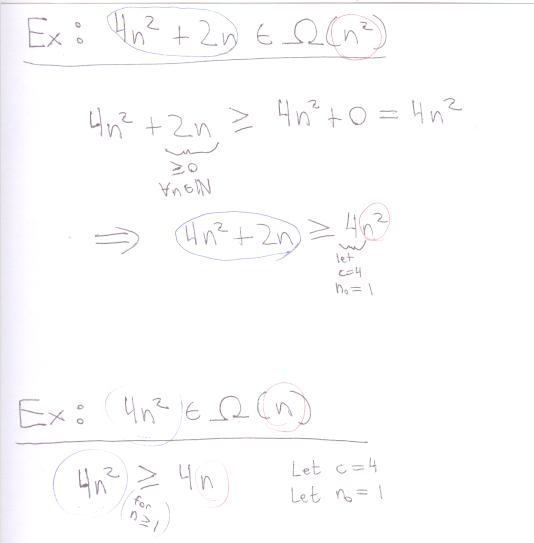 Ex: 4n² + 2n ∈ Ω(n²)
4n² + 2n ≥ 4n² + 0 = 4n²
≥0
∀n∈ℕ
⇒ 4n² + 2n ≥ 4n²
let
c=4
n₀=1
Ex: 4n² ∈ Ω(n)
4n² ≥ 4n Let c=4
(for n≥1) Let n₀=1